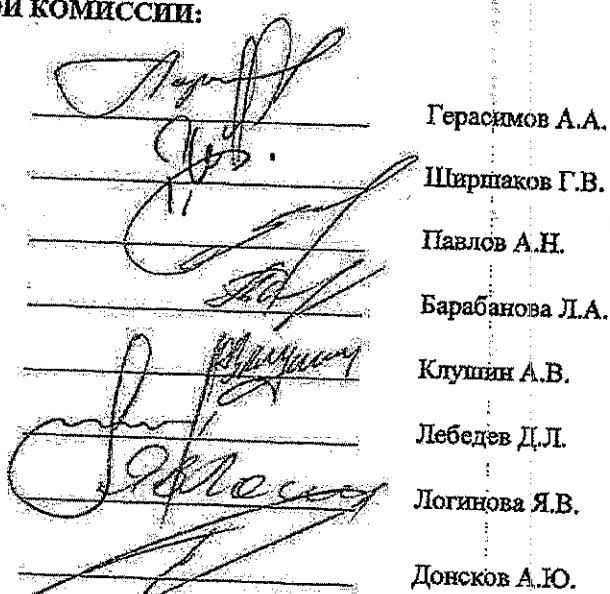 Й КОМИССИИ:
Герасимов А.А.
Ширшаков Г.В.
Павлов А.Н.
Барабанова Л.А.
Клушин А.В.
Лебедев Д.Л.
Логинова Я.В.
Донсков А.Ю.